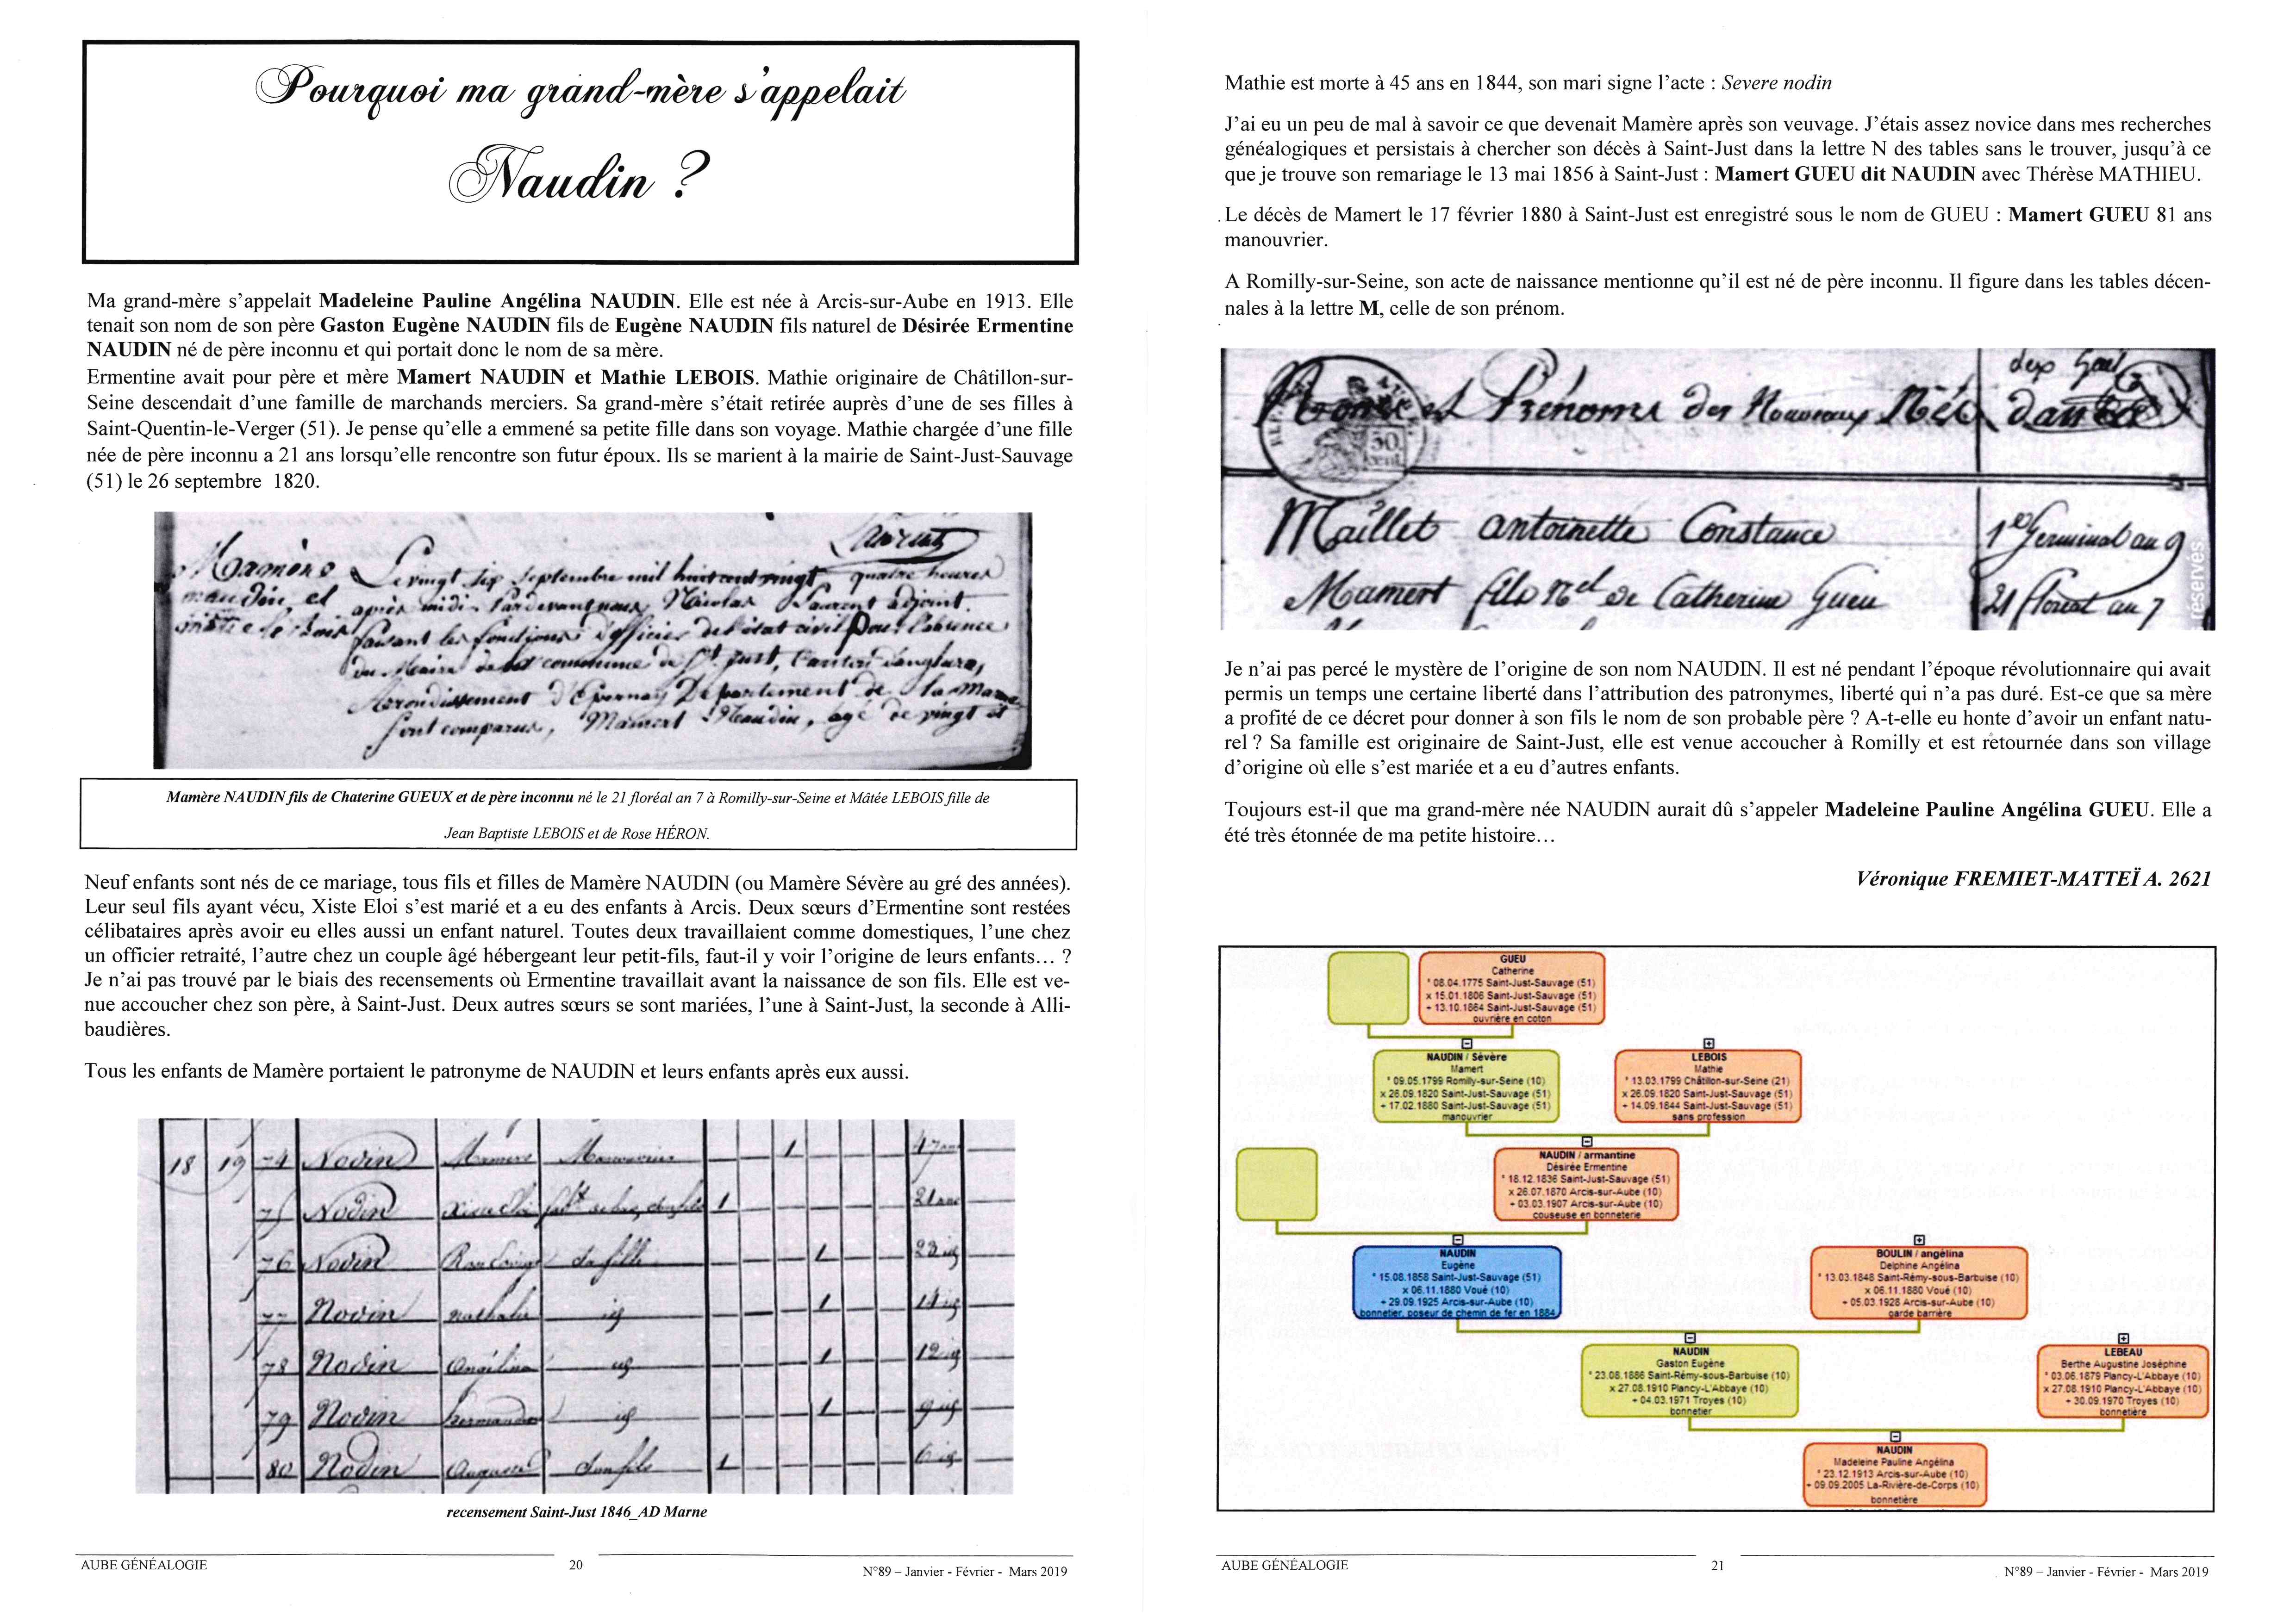 Pourquoi ma grand-mère s'appelait
Naudin ?
Ma grand-mère s'appelait Madeleine Pauline Angélina NAUDIN. Elle est née à Arcis-sur-Aube en 1913. Elle
tenait son nom de son père Gaston Eugène NAUDIN fils de Eugène NAUDIN fils naturel de Désirée Ermentine
NAUDIN né de père inconnu et qui portait donc le nom de sa mère.
Ermentine avait pour père et mère Mamert NAUDIN et Mathie LEBOIS. Mathie originaire de Châtillon-sur-
Seine descendait d'une famille de marchands merciers. Sa grand-mère s'était retirée auprès d'une de ses filles à
Saint-Quentin-le-Verger (51). Je pense qu'elle a emmené sa petite fille dans son voyage. Mathie chargée d'une fille
née de père inconnu a 21 ans lorsqu'elle rencontre son futur époux. Ils se marient à la mairie de Saint-Just-Sauvage
(51) le 26 septembre 1820.
Mamère Le vingt six septembre mil huit cent vingt, quatre heures
naudin, et après midi Pardevant nous Nicolas Laurent adjoint
faisant les fonctions d'officier de l'état civil pour l'absence
du Maire de la commune de St. just, Canton d'anglure,
Arrondissement d'Epernay Département de la Marne
sont comparus, Mamert Naudin, agé de vingt et
Mamère NAUDIN fils de Chaterine GUEUX et de père inconnu né le 21 floréal an 7 à Romilly-sur-Seine et Mâtée LEBOIS fille de
Jean Baptiste LEBOIS et de Rose HÉRON.
Neuf enfants sont nés de ce mariage, tous fils et filles de Mamère NAUDIN (ou Mamère Sévère au gré des années).
Leur seul fils ayant vécu, Xiste Eloi s'est marié et a eu des enfants à Arcis. Deux sœurs d'Ermentine sont restées
célibataires après avoir eu elles aussi un enfant naturel. Toutes deux travaillaient comme domestiques, l'une chez
un officier retraité, l'autre chez un couple âgé hébergeant leur petit-fils, faut-il y voir l'origine de leurs enfants… ?
Je n'ai pas trouvé par le biais des recensements où Ermentine travaillait avant la naissance de son fils. Elle est ve-
nue accoucher chez son père, à Saint-Just. Deux autres sœurs se sont mariées, l'une à Saint-Just, la seconde à Alli-
baudières.
Tous les enfants de Mamère portaient le patronyme de NAUDIN et leurs enfants après eux aussi.
18 19 74 Nodin Mamere Manouvrier 1 47 ans
75 Nodin 1 21 ans
76 Nodin sa fille 1 23 id
77 Nodin Nathalie id 1 14 id
78 Nodin Angélina id 1 12 id
79 Nodin id 1 9 id
80 Nodin son fils 1 6 id
recensement Saint-Just 1846_AD Marne
AUBE GÉNÉALOGIE 20 N°89 – Janvier - Février - Mars 2019
Mathie est morte à 45 ans en 1844, son mari signe l'acte : Severe nodin
J'ai eu un peu de mal à savoir ce que devenait Mamère après son veuvage. J'étais assez novice dans mes recherches
généalogiques et persistais à chercher son décès à Saint-Just dans la lettre N des tables sans le trouver, jusqu'à ce
que je trouve son remariage le 13 mai 1856 à Saint-Just : Mamert GUEU dit NAUDIN avec Thérèse MATHIEU.
Le décès de Mamert le 17 février 1880 à Saint-Just est enregistré sous le nom de GUEU : Mamert GUEU 81 ans
manouvrier.
A Romilly-sur-Seine, son acte de naissance mentionne qu'il est né de père inconnu. Il figure dans les tables décen-
nales à la lettre M, celle de son prénom.
Noms et Prénoms des Nouveaux Nés
Maillet antoinette Constance 1er Germinal an 9
Mamert fils Nel de Catherine Gueu 21 floreal an 7
réservés
Je n'ai pas percé le mystère de l'origine de son nom NAUDIN. Il est né pendant l'époque révolutionnaire qui avait
permis un temps une certaine liberté dans l'attribution des patronymes, liberté qui n'a pas duré. Est-ce que sa mère
a profité de ce décret pour donner à son fils le nom de son probable père ? A-t-elle eu honte d'avoir un enfant natu-
rel ? Sa famille est originaire de Saint-Just, elle est venue accoucher à Romilly et est retournée dans son village
d'origine où elle s'est mariée et a eu d'autres enfants.
Toujours est-il que ma grand-mère née NAUDIN aurait dû s'appeler Madeleine Pauline Angélina GUEU. Elle a
été très étonnée de ma petite histoire…
Véronique FREMIET-MATTEÏ A. 2621
GUEU
Catherine
° 08.04.1775 Saint-Just-Sauvage (51)
x 15.01.1806 Saint-Just-Sauvage (51)
+ 13.10.1864 Saint-Just-Sauvage (51)
ouvrière en coton
NAUDIN / Sévère
Mamert
° 09.05.1799 Romilly-sur-Seine (10)
x 26.09.1820 Saint-Just-Sauvage (51)
+ 17.02.1880 Saint-Just-Sauvage (51)
manouvrier
LEBOIS
Mathie
° 13.03.1799 Châtillon-sur-Seine (21)
x 26.09.1820 Saint-Just-Sauvage (51)
+ 14.09.1844 Saint-Just-Sauvage (51)
sans profession
NAUDIN / armantine
Désirée Ermentine
° 18.12.1836 Saint-Just-Sauvage (51)
x 26.07.1870 Arcis-sur-Aube (10)
+ 03.03.1907 Arcis-sur-Aube (10)
couseuse en bonneterie
NAUDIN
Eugène
° 15.08.1858 Saint-Just-Sauvage (51)
x 06.11.1880 Voué (10)
+ 29.09.1925 Arcis-sur-Aube (10)
bonnetier, poseur de chemin de fer en 1884
BOULIN / angélina
Delphine Angélina
° 13.03.1848 Saint-Rémy-sous-Barbuise (10)
x 06.11.1880 Voué (10)
+ 05.03.1928 Arcis-sur-Aube (10)
garde barrière
NAUDIN
Gaston Eugène
° 23.08.1886 Saint-Rémy-sous-Barbuise (10)
x 27.08.1910 Plancy-L'Abbaye (10)
+ 04.03.1971 Troyes (10)
bonnetier
LEBEAU
Berthe Augustine Joséphine
° 03.06.1879 Plancy-L'Abbaye (10)
x 27.08.1910 Plancy-L'Abbaye (10)
+ 30.09.1970 Troyes (10)
bonnetière
NAUDIN
Madeleine Pauline Angélina
° 23.12.1913 Arcis-sur-Aube (10)
+ 09.09.2005 La-Rivière-de-Corps (10)
bonnetière
AUBE GÉNÉALOGIE 21 N°89 – Janvier - Février - Mars 2019